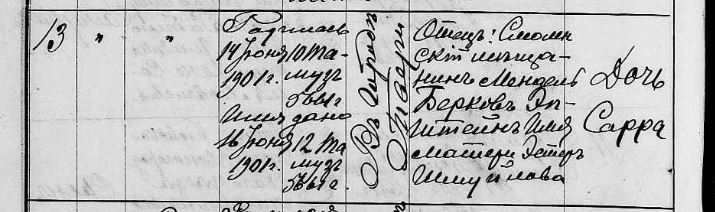 13 " "
Родилась
14 Іюня 10 Та-
1901 г. муз
5661 г
Имя дано
16 Іюня 12 Та
1901 г. муз
5661 г.
Въ городѣ
Твери
Отецъ: Смолен
скій мѣща-
нинъ Мендель
Берковъ Эп-
штейнъ Имя
матери Эстеръ
Шмуйлова
Дочь
Сарра